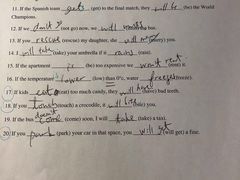 11. If the Spanish team gets (get) to the final match, they will be (be) the World
Champions.
12. If we don't (not go) now, we will (miss) the bus.
13. If you rescue (rescue) my daughter, she will (marry) you.
14. I will take (take) your umbrella if it rains (rain).
15. If the apartment is (be) too expensive we won't rent (rent) it.
16. If the temperature lower (low) than 0°c, water freezes (freeze).
17 If kids eat (eat) too much candy, they will have (have) bad teeth.
18. If you touch (touch) a crocodile, it will bite (bite) you.
19. If the bus doesn't come (come) soon, I will take (take) a taxi.
20. If you park (park) your car in that space, you will get (get) a fine.